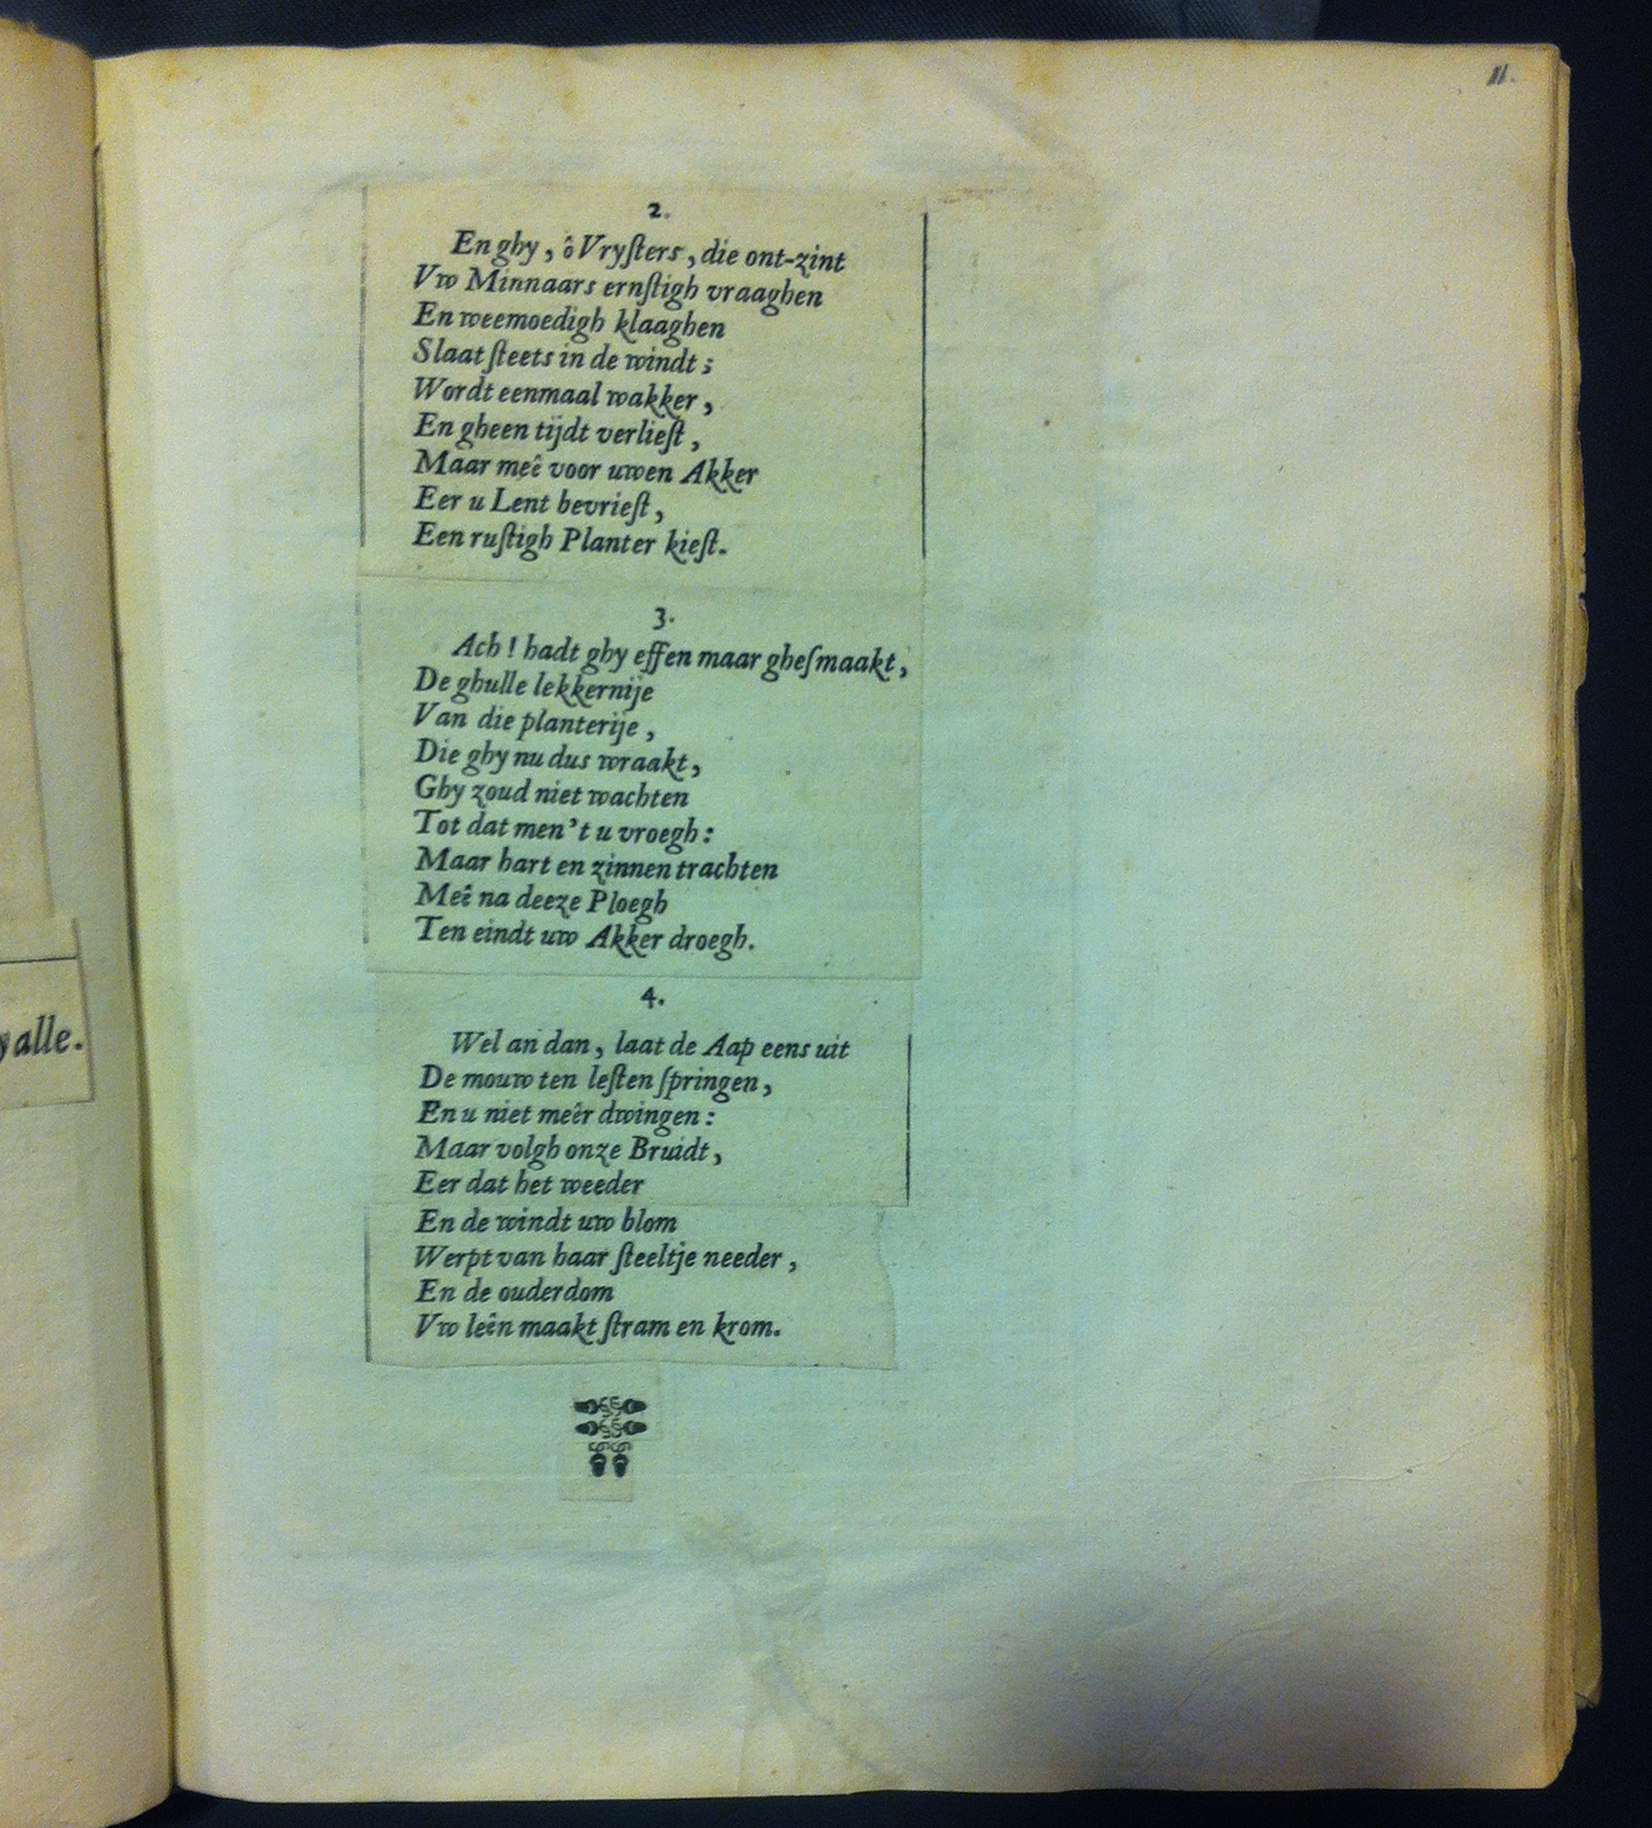 11.
yalle.
2.
En ghy, ô Vryſters, die ont-zint
Vw Minnaars ernſtigh vraaghen
En weemoedigh klaaghen
Slaat ſteets in de windt;
Wordt eenmaal wakker,
En gheen tijdt verlieſt,
Maar meê voor uwen Akker
Eer u Lent bevrieſt,
Een ruſtigh Planter kieſt.
3.
Ach! hadt ghy effen maar gheſmaakt,
De ghulle lekkernije
Van die planterije,
Die ghy nu dus wraakt,
Ghy zoud niet wachten
Tot dat men't u vroegh:
Maar hart en zinnen trachten
Meê na deeze Ploegh
Ten eindt uw Akker droegh.
4.
Wel an dan, laat de Aap eens uit
De mouw ten leſten ſpringen,
En u niet meêr dwingen:
Maar volgh onze Bruidt,
Eer dat het weeder
En de windt uw blom
Werpt van haar ſteeltje needer,
En de ouderdom
Vw leên maakt ſtram en krom.